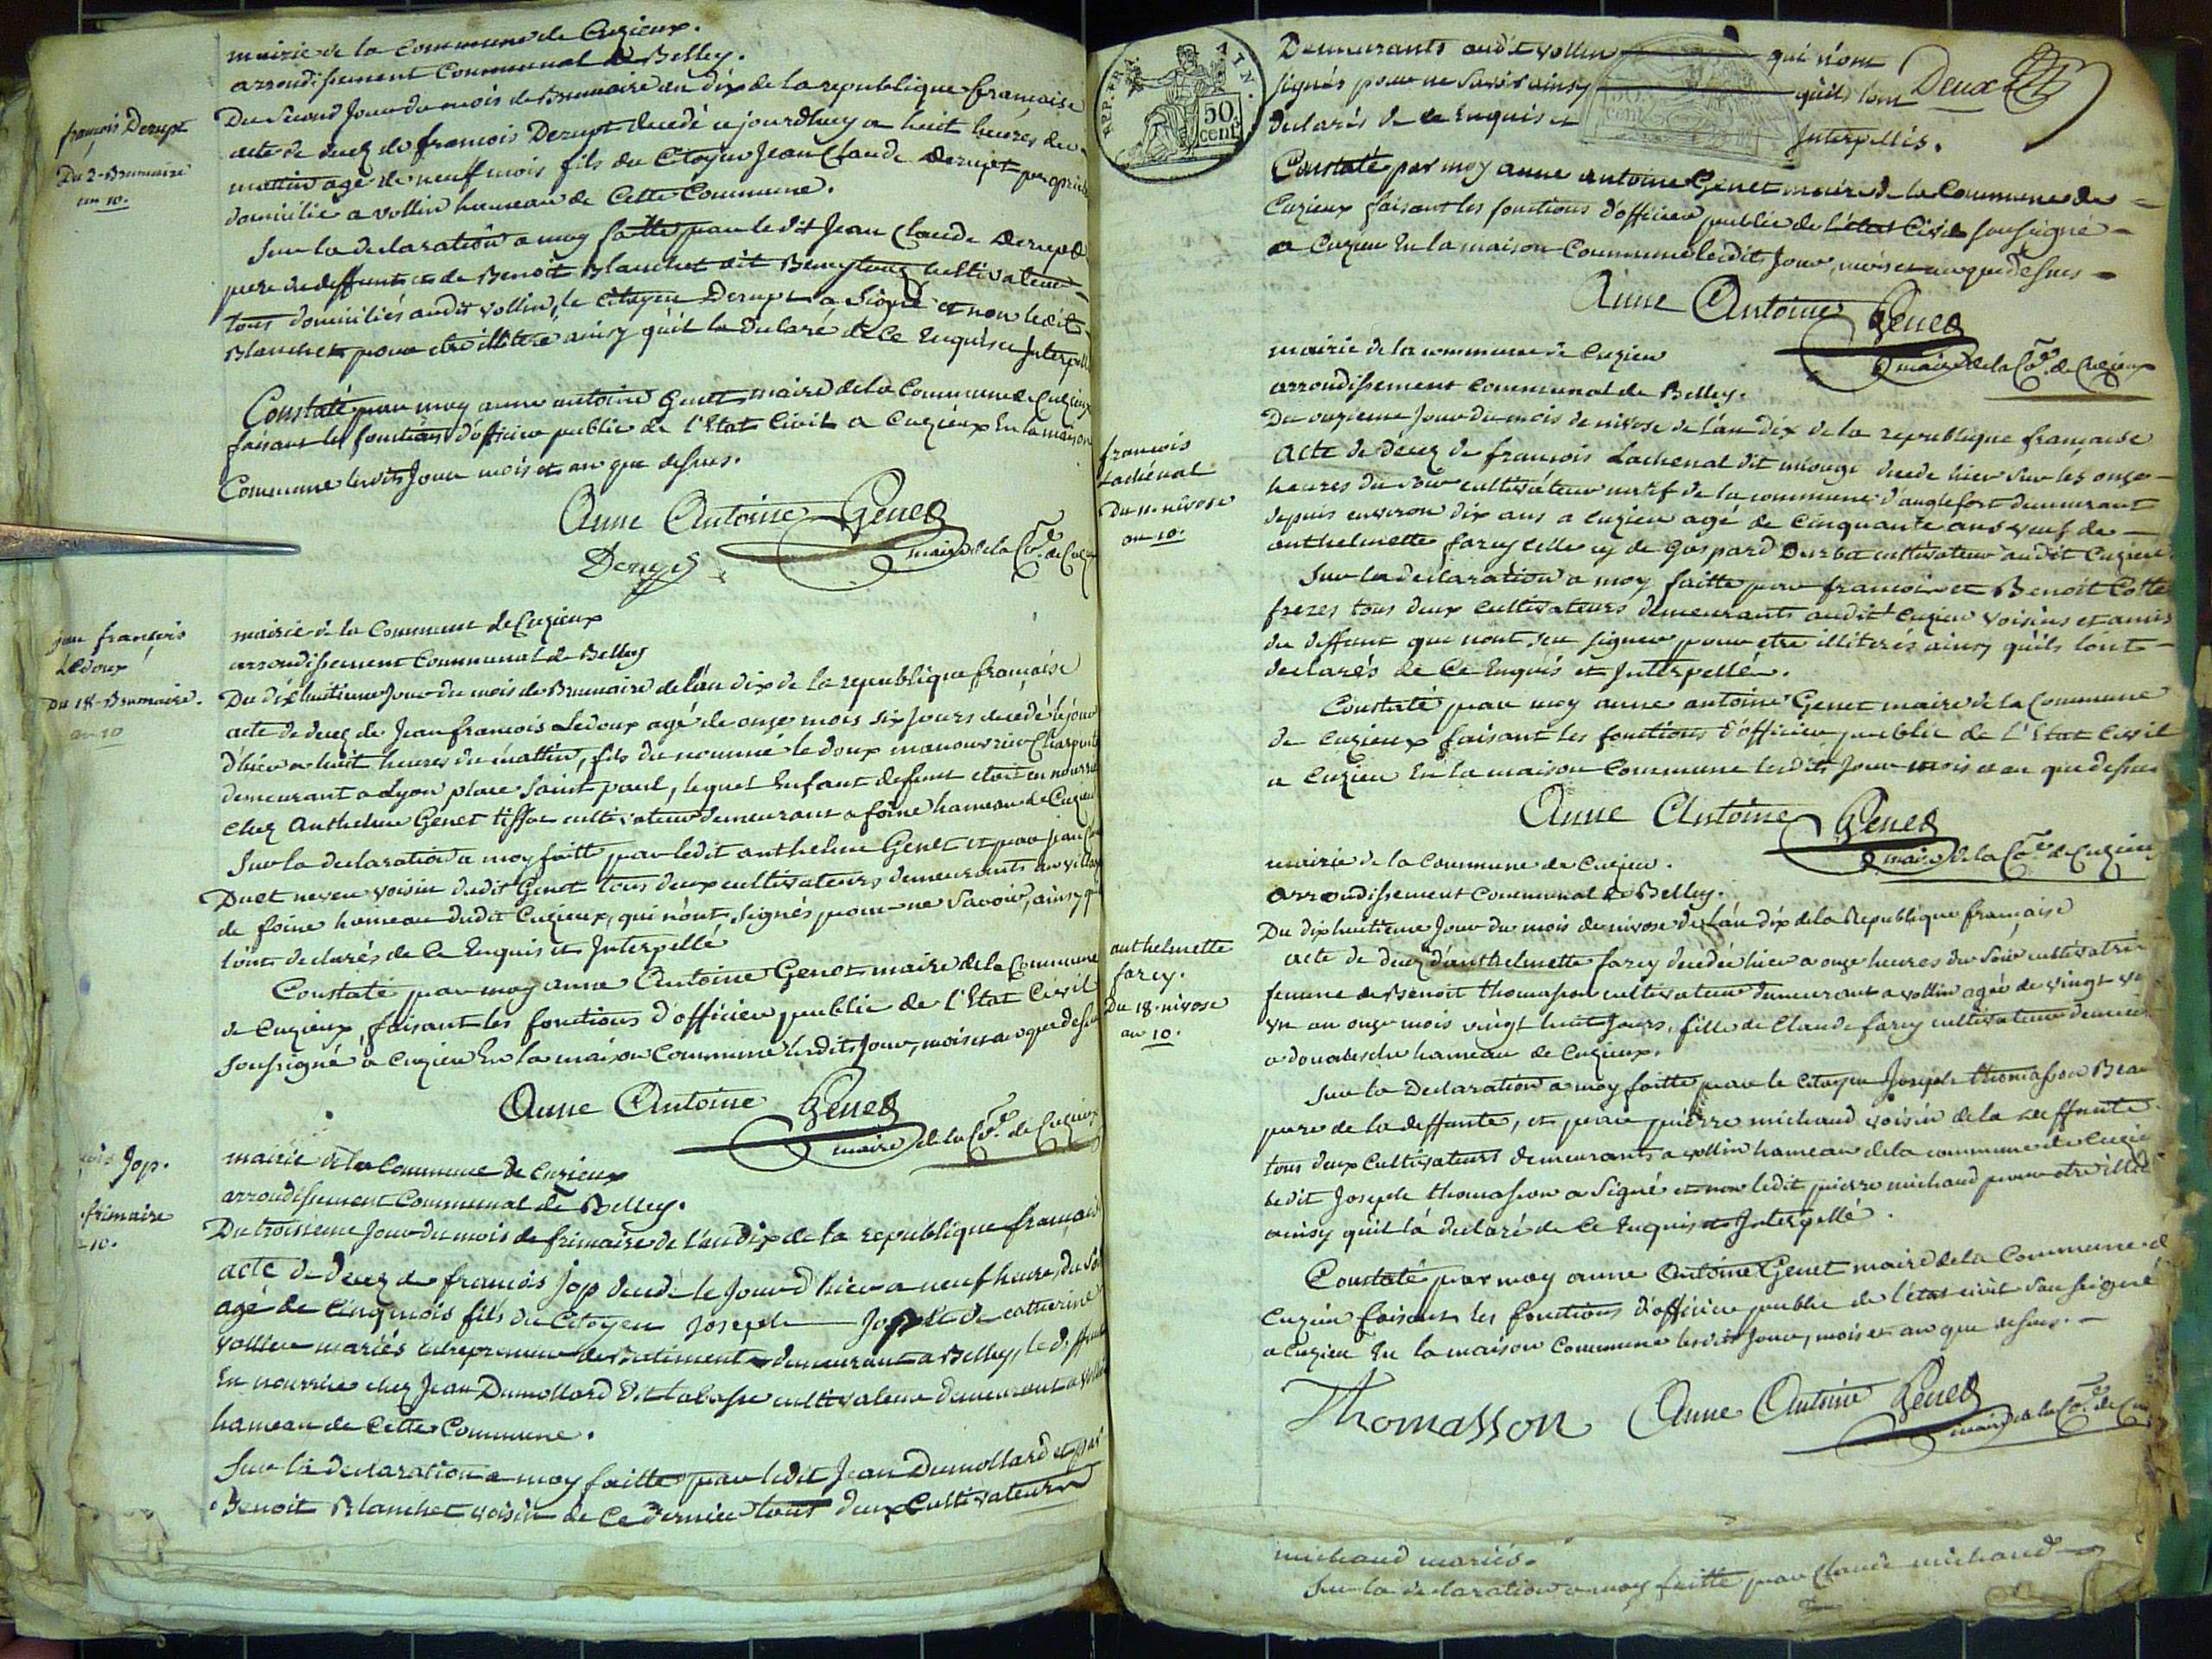 mairie de la Commune de Cuzieux.
arrondissement Communal de Belley.
françois Derupt
Du 2 Brumaire
an 10.
Du Second Jour du mois de Brumaire an dix de la republique française
acte de decez de francois Derupt decedé ce jourdhuy a huit heures du
mattin agé de neuf mois fils du Citoyen Jean Claude Derupt
domicilié a vollin hameau de Cette Commune.
Sur la declaration a moy faitte par le dit Jean Claude Derupt
pere du deffunt et de Benoit Blanchet dit cultivateur
tous domiciliés audit vollin, le citoyen Derupt a Signé et non ledit
Blanchet pour etre illitere ainsy qu'il la declaré de ce Enquis et Interpellé
Constaté par moy anne antoine Genet maire de la Commune de Cuzieux
faisant les fonctions d'officier public de l'Etat Civil a Cuzieux En la maison
Commune lesdits Jour mois et an que dessus.
Anne Antoine Genet
maire de la Cne. de Cuz
Derupt
jean françois
Ledoux
Du 18 Brumaire.
an 10
mairie de la Commune de Cuzieux
arrondissement Communal de Belley
Du dixhuitieme Jour du mois de Brumaire de l'an dix de la republique française
acte de decez de Jean francois Ledoux agé de onze mois six Jours decedé le jour
d'hier a huit heures du mattin, fils du nommé le doux manouvrier
demeurant a Lyon place Saint paul, lequel Enfant defunt etoit en nourrice
chez Anthelme Genet tiffoe cultivateur demeurant a foine hameau de Cuzieu
Sur la declaration a moy faitte par ledit anthelme Genet et par jean
Duet neveu voisin dudit Genet tous deux cultivateurs demeurants au village
de foine hameau dudit Cuzieux, qui n'ont signés pour ne Savoir, ainsy qu
lont declarés de Ce Enquis et Interpellé
Constaté par moy anne Antoine Genet maire de la Commune
de Cuzieux, faisant les fonctions d'officier public de l'Etat Civil
soussigné a Cuzieu En la maison Commune lesdits Jour, mois et an que dessus
Anne Antoine Genet
maire de la Cne. de Cuzieux
Jop.
frimaire
10.
mairie de la Commune de Cuzieux
arrondissement Communal de Belley.
Du troisieme Jour du mois de frimaire de l'an dix de la republique français
acte de decez de francois jop decedé le Jour d'hier a neuf heures du Soir
agé de Cinq mois fils du Citoyen Joseph Jop et de catherine
vollen mariés entrepreneur de Batiments demeurant a Belley, le deffunt
En nourrice chez Jean Dumollard dit labasse cultivateur demeurant a vollin
hameau de Cette Commune.
Sur la declaration a moy faitte par ledit Jean Dumollard et par
Benoit Blanchet voisin de Ce dernier tous deux Cultivateurs
REP. FRA. ATN.
50
cent.
Demeurants audit vollin qui n'ont
signés pour ne Savoir ainsy qu'ils lont
declarés de ce Enquis et Interpellés.
50.
cent
Deux
Constaté par moy anne antoine Genet maire de la Commune de
Cuzieux faisant les fonctions d'officier public de l'état Civil soussigné
a Cuzieu En la maison Commune lesdits Jour, mois et an que dessus
Anne Antoine Genet
maire de la Cne. de Cuzieux
françois
Lachénal
Du 11 nivose
an 10.
mairie de la commune de Cuzieu
arrondissement communal de Belley.
Du onzieme Jour du mois de nivose de l'an dix de la republique française
Acte de décez de françois Lachenal dit miouge decedé hier sur les onze
heures du soir cultivateur natif de la commune d'anglefort demeurant
depuis environ dix ans a Cuzieu agé de Cinquante ans veuf de
anthelmette farcy celle cy de Gaspard Durba cultivateur audit Cuzieu
Sur la declaration a moy faitte par francois et Benoit Collet
freres tous deux cultivateurs demeurants audit Cuzieu voisins et amis
du deffunt qui nont seu signer pour etre illiterés ainsy quils lont
declarés de Ce Enquis et Interpellés.
Constaté par moy anne antoine Genet maire de la Commune
de Cuzieux faisant les fonctions d'officier public de l'Etat Civil
a Cuzieu En la maison Commune lesdits Jour mois et an que dessus
Anne Antoine Genet
maire de la Cne. de Cuzieu
anthelmette
farcy.
Du 18 nivose
an 10.
mairie de la Commune de Cuzieu.
arrondissement Communal de Belley.
Du dixhuitieme Jour du mois de nivose de l'an dix de la Republique française
acte de decez d'anthelmette farcy decedée hier a onze heures du Soir cultivatri
femme de Benoit thomasson cultivateur demeurant a vollin agée de vingt
un an onze mois vingt huit Jours, fille de Claude farcy cultivateur
hameau de Cuzieux.
Sur la Declaration a moy faitte par le Citoyen Joseph thomasson Beau
pere de la deffunte, et par pierre michaud voisin de la deffunte
tous deux Cultivateurs demeurants a vollin hameau de la commune de Cuzie
ledit Joseph thomasson a Signé et non ledit pierre michaud pour etre illite
ainsy quil la declaré de Ce Enquis et Interpellé.
Constaté par moy anne Antoine Genet maire de la Commune de
Cuzieu faisant les fonctions d'officier public de l'état civil soussigné
a Cuzieu En la maison Commune lesdits Jour, mois et an que dessus.
Thomasson
Anne Antoine Genet
maire de la Cne. de Cu
michaud mariés.
Sur la declaration a moy faitte par Claude michaud